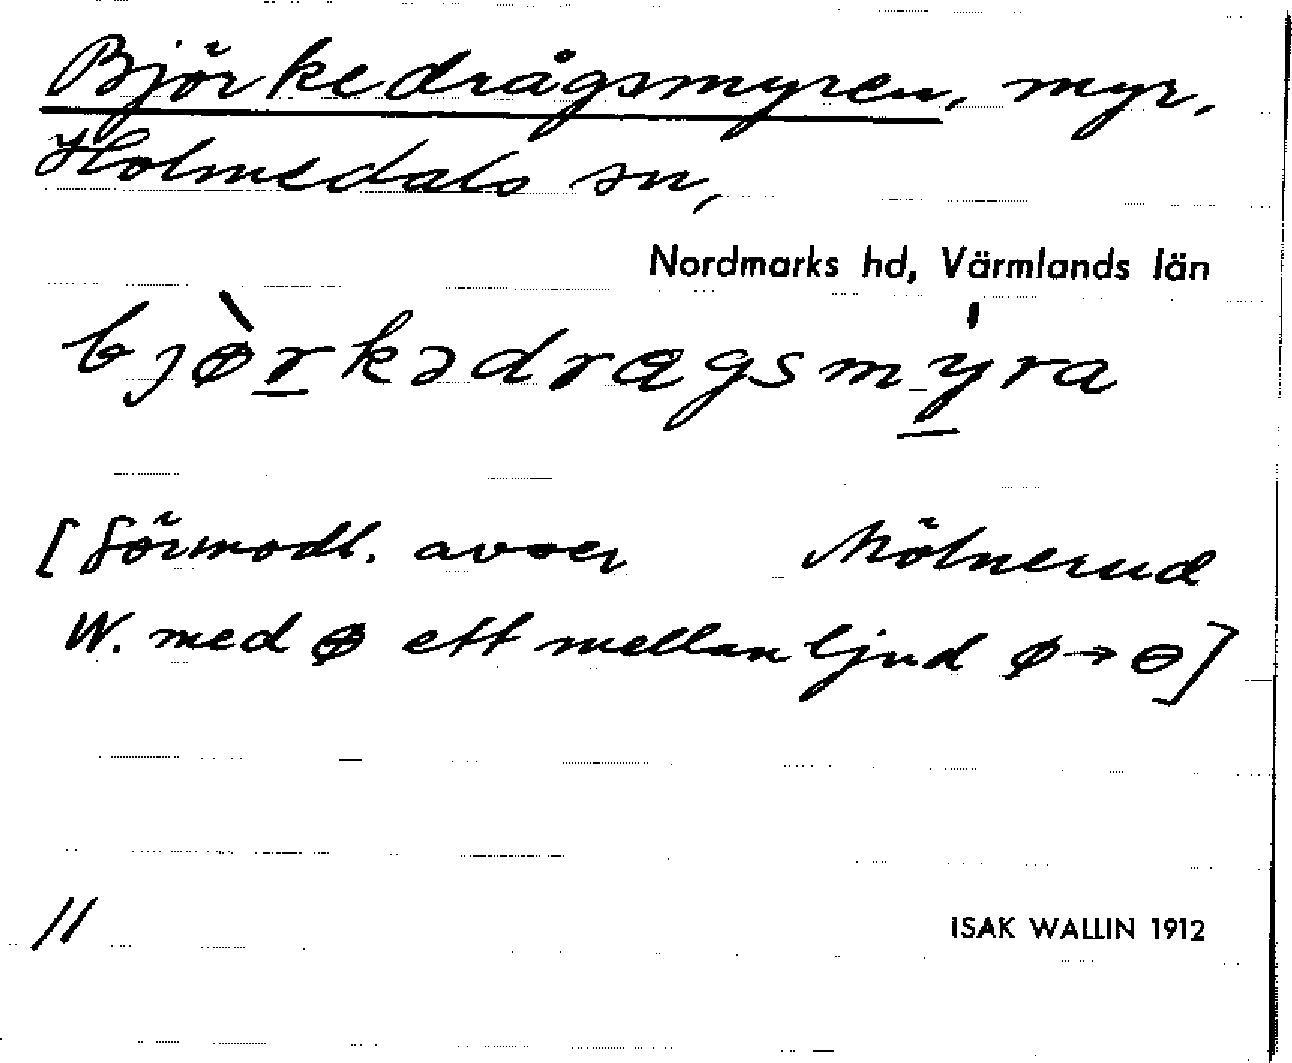 Björkedrågsmyren, myr,
Holmedals sn,
Nordmarks hd, Värmlands län
bjɵ̀rkədragsmýra
[Förmodl. avser Mölnerud
W. med ꝋ ett mellanljud ø→ɵ]
11
ISAK WALLIN 1912